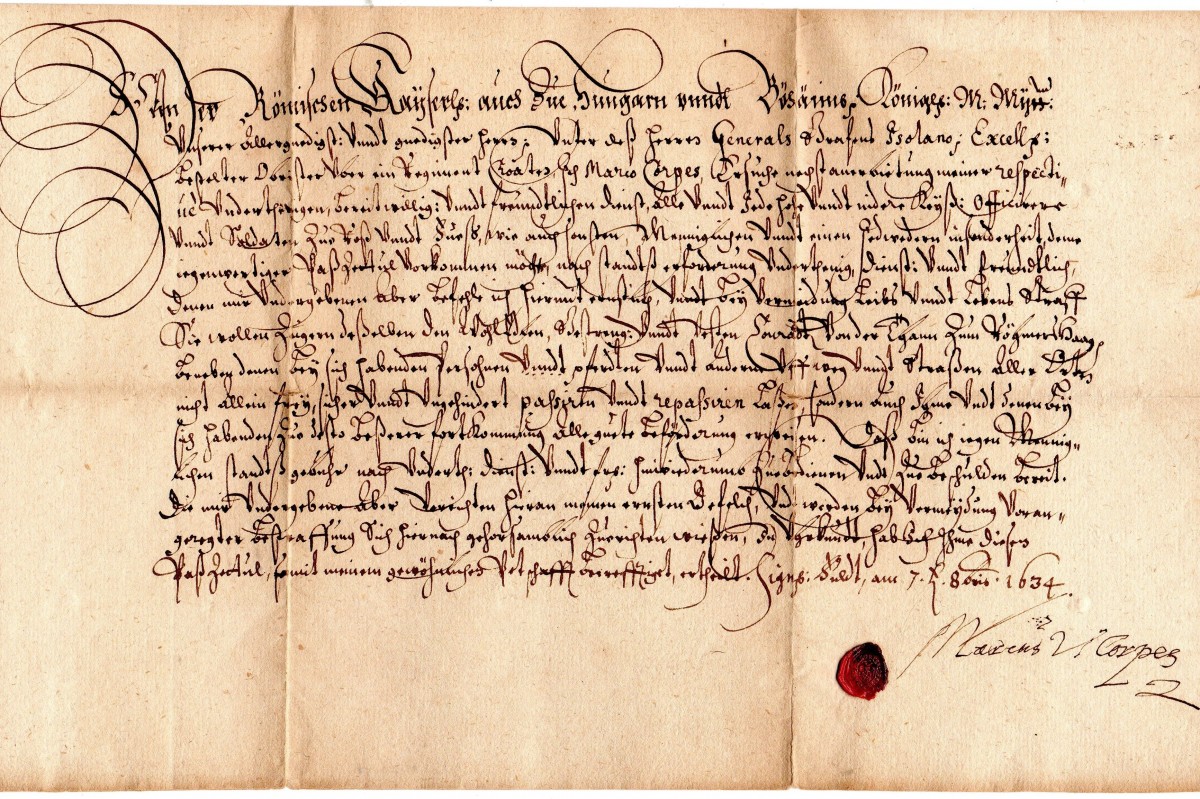 Der Römischen Kayserl: auch Zue Hungarn unndt Böhaimb Königl: M: Mytt:
Unserer Allergnedigst: Undt gnedigster Herrn: Unter deß Herren Generals Grafens Isolano, Excell:
bestelter Obrister Uber ein Regiment Croaten, Ich Marco Corpes, Ersuche nechst anerbietung meiner respecti-
ue Underthenigen, bereitwillig: Undt freundtlichen dienst, alle Undt Jede hohe Undt nidere Keyß: Officirere
Undt Soldaten Zue Roß Undt Fueß, wie auch sonsten, Menniglichen Undt einen Jedwedern insonderheit, deme
iegenwertiger Paß Zettul Vorkommen möchte, nach standtß erforderung Underthenig, dienst: Undt freundtlich,
denen mir Undergebenen Aber befehle ich hiermit ernstlich, Undt bey Vermeidung Leibs Undt Lebens Straff
Sie wollen Zeigern deßelben den WohlEdlen, Gestreng: Undt Vesten Conradt Von der Thann Zum
beneben denen bey sich habenden Persohnen Undt pferdten Undt andern Uff weg Undt Straßen Aller Orten
nicht allein frey, sicher Undt Ungehindert passirn Undt repassiren laßen, sondern auch Ihme Undt denen bey
sich habenden Zue desto beßerer fortkommung alle guete beförderung erweisen. Daß bin ich iegen Mennig-
lichen standtß gebühr nach Underth: dienst: Undt frl: hinwiederumb Zue bedienen Undt Zue beschulden bereit.
Die mir Undergebene Aber Verrichten hieran meinen ernsten Befelch, Und werden bey Vermeydung Voran-
geregter bestraffung Sich hiernach gehorsamblich Zuerichten wießen, Zu Uhrkundt, hab Ich Ihme diesen
Paß Zettul, so mit meinem gewöhnlichen Petschafft becrefftiget, ertheilt. Sign: Fuldt, am 7. 8bris 1634.
Marcus Corpes